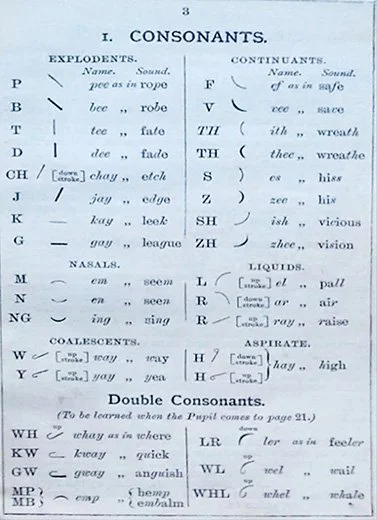 3
1. CONSONANTS.
EXPLODENTS.
Name. Sound.
P pee as in rope
B bee „ robe
T tee „ fate
D dee „ fade
CH [down stroke] chay „ etch
J jay „ edge
K kay „ leek
G gay „ league
CONTINUANTS.
Name. Sound.
F ef as in safe
V vee „ save
TH ith „ wreath
TH thee „ wreathe
S es „ hiss
Z zee „ his
SH ish „ vicious
ZH zhee „ vision
NASALS.
M em „ seem
N en „ seen
NG ing „ sing
LIQUIDS.
L [up stroke] el „ pall
R [down stroke] ar „ air
R [up stroke] ray „ raise
COALESCENTS.
W [up stroke] way „ way
Y [up stroke] yay „ yea
ASPIRATE.
H [down stroke]
H [up stroke] } hay „ high
Double Consonants.
(To be learned when the Pupil comes to page 21.)
WH up whay as in where
KW kway „ quick
GW gway „ anguish
MP
MB } emp „ { hemp
embalm
LR down ler as in feeler
WL up wel „ wail
WHL up whel „ whale